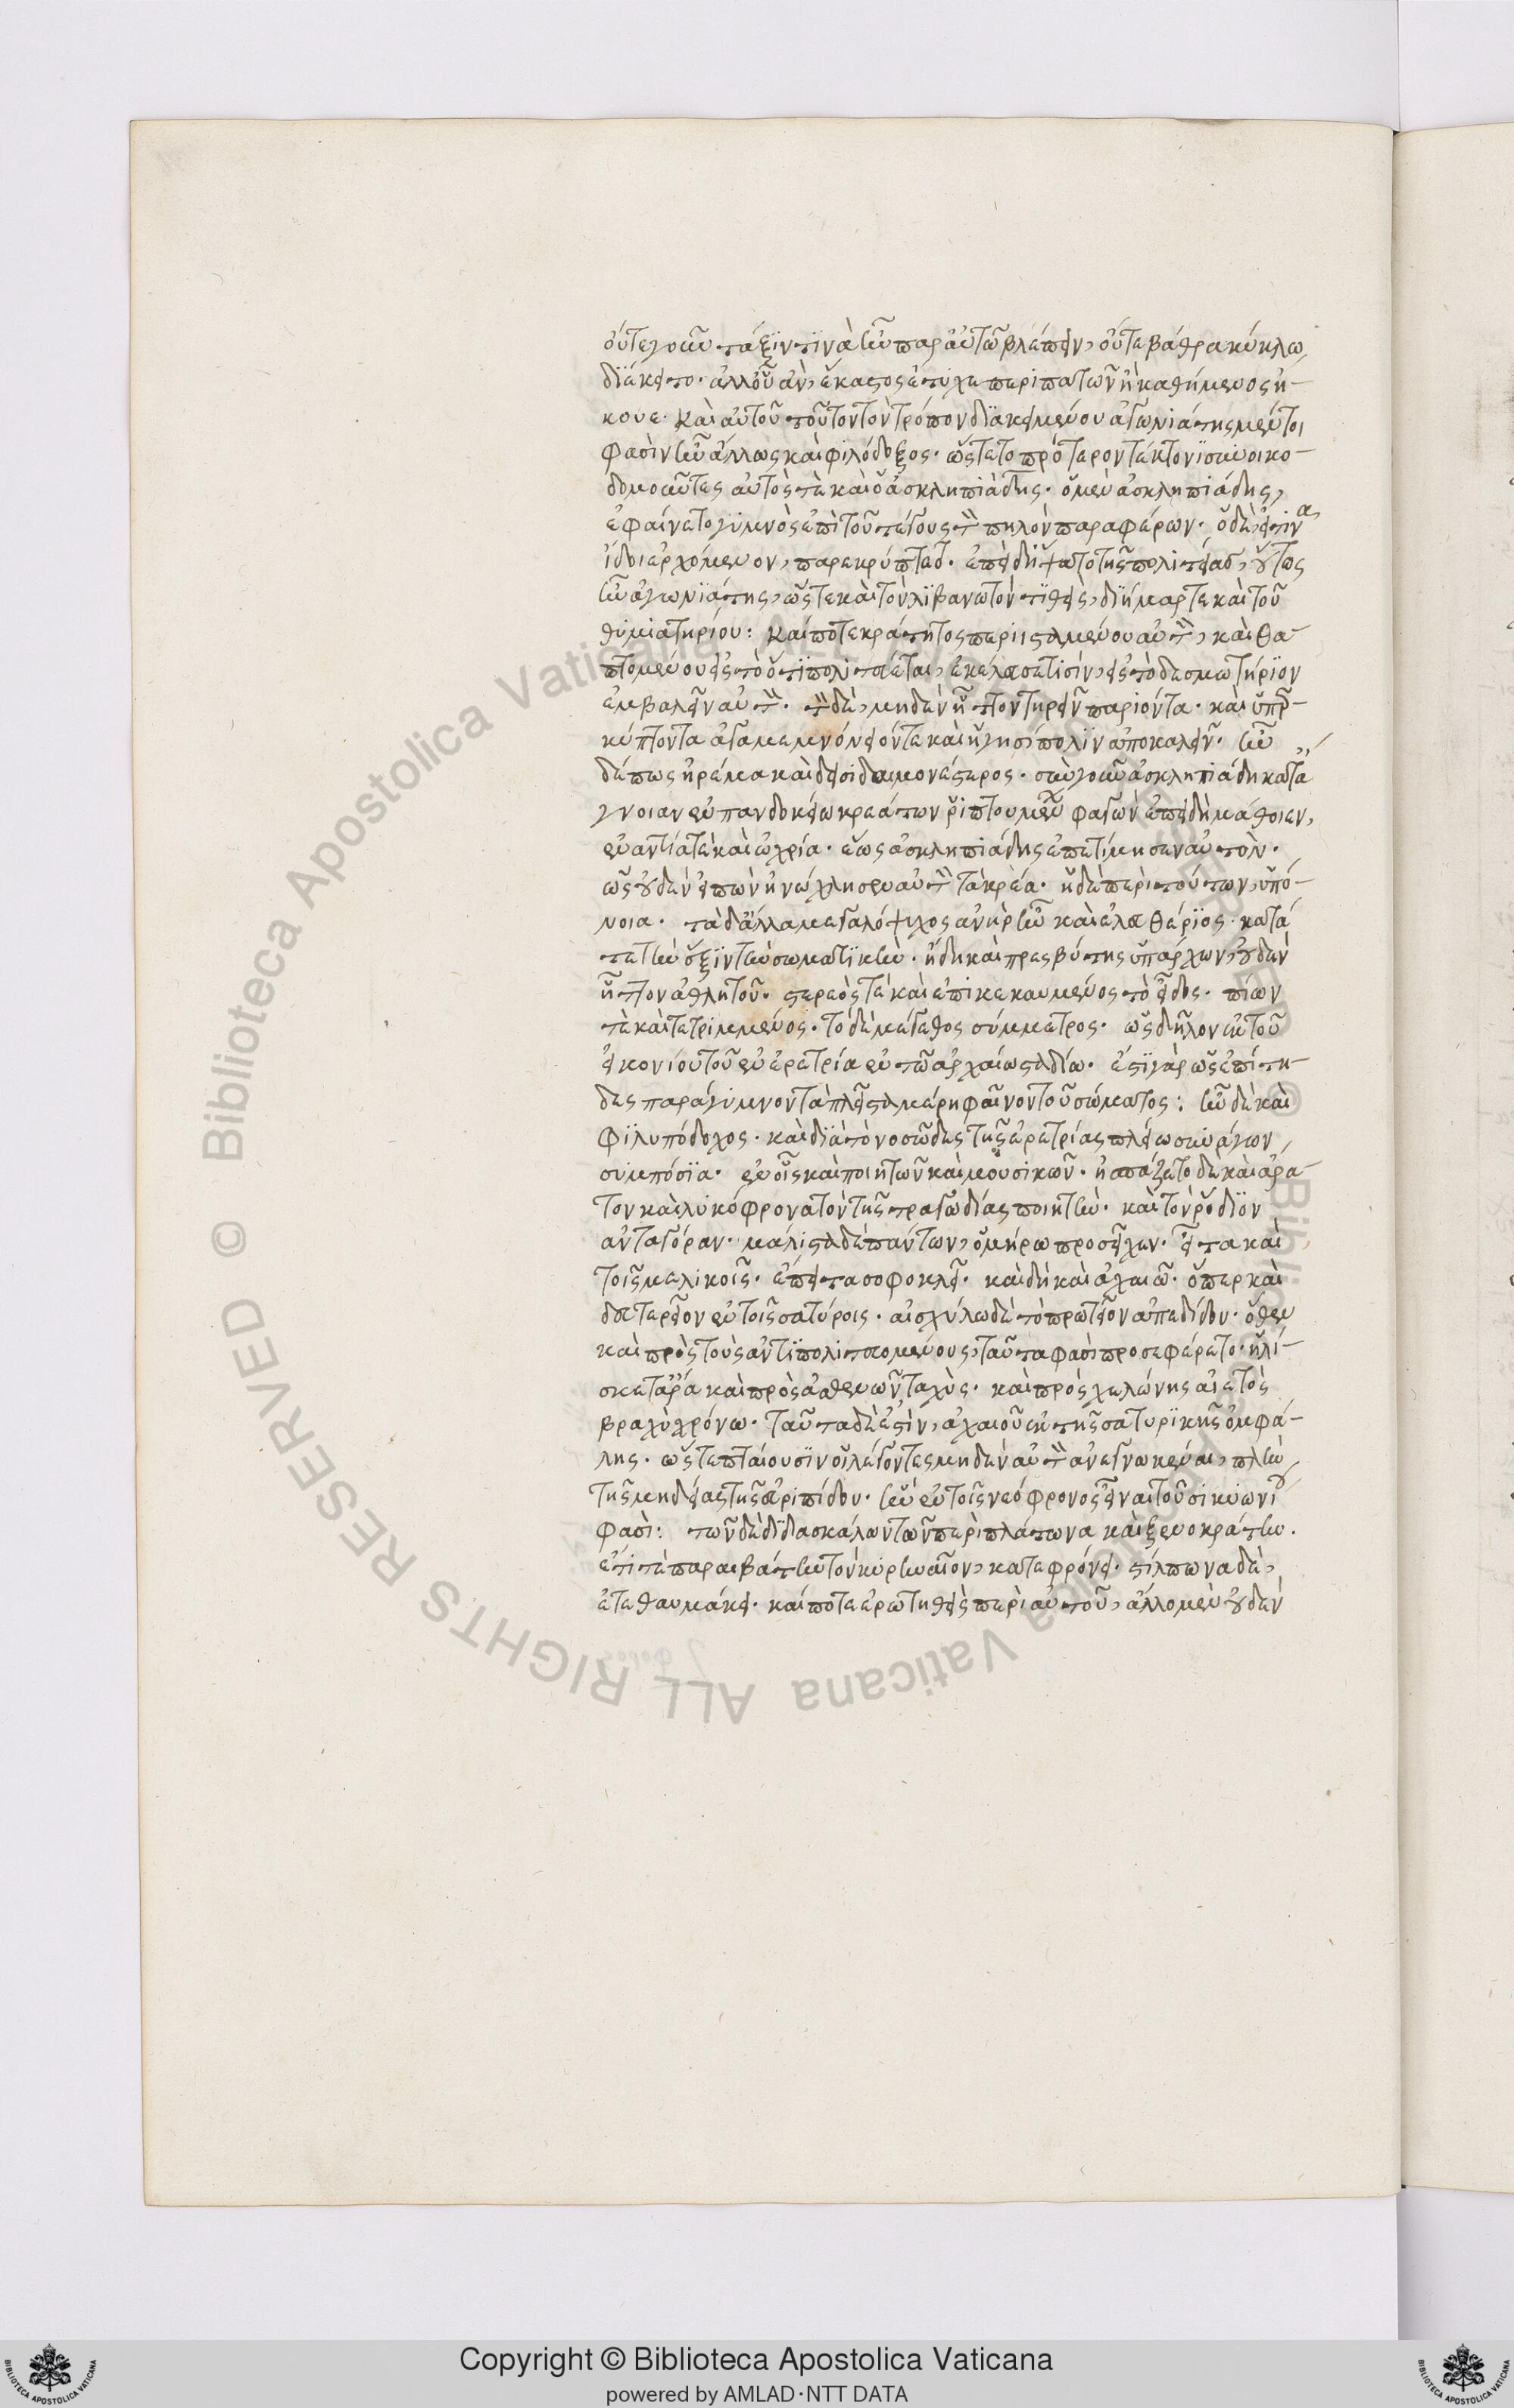 οὔτε γοῦν τάξιν τινὰ ἦν παρ' αὐτῶ βλέπειν, οὔτε βάθρα κύκλω
διέκειτο· ἀλλ' οὗ ἂν ἕκαστος ἔτυχε περιπατῶν ἢ καθήμενος ἤ-
κουε· καὶ αὐτοῦ τοῦτον τὸν τρόπον διακειμένου ἀγωνιάτης μέντοι
φασὶν ἦν ἄλλως καὶ φιλόδοξος· ὥστε τὸ πρότερον τέκτονι συνοικο-
δομοῦντες αὐτός τε καὶ ὁ ἀσκληπιάδης· ὁ μὲν ἀσκληπιάδης,
ἐφαίνετο γυμνὸς ἐπὶ τοῦ τέγους τὸν πηλὸν παραφέρων· ὁ δὲ, εἴ τινα
ἴδοι ἐρχόμενον, παρεκρύπτετο· ἐπεὶ δ' ἥψατο τῆς πολιτείας, οὕτως
ἦν ἀγωνιάτης, ὥστε καὶ τὸν λιβανωτὸν τιθεὶς, διήμαρτε καὶ τοῦ
θυμιατηρίου: καί ποτε κράτητος περιισταμένου αὐτὸν, καὶ θα-
πτομένου εἰς τὸ ὅτι πολιτεύεται, ἐκέλευσε τισὶν, εἰς τὸ δεσμωτήριον
ἐμβαλεῖν αὐτὸν· τὸν δὲ, μηδὲν ἧττον τηρεῖν παριόντα· καὶ ὑπερ-
κύπτοντα ἀγαμεμνόνειόν τε καὶ ἡγησίπολιν ἀποκαλεῖν· ἦν
δέ πως ἠρέμα καὶ δεισιδαιμονέστερος· σὺν γοῦν ἀσκληπιάδη κατ' ἄ
γνοιαν ἐν πανδοκείω κρεάτων ῥιπτουμένων φαγών ἐπειδὴ μάθοιεν,
ἐναντία τὲ καὶ ὠχρία· ἕως ἀσκληπιάδης ἐπετίμησεν αὐτὸν·
ὡς οὐδὲν εἰπὼν ἠνώχλησεν αὐτὸν τὰ κρέα· ἡ δὲ περὶ τούτων, ὑπό-
νοια· τὰ δ' ἄλλα μεγαλόψυχος ἀνὴρ ἦν καὶ ἐλευθέριος· κατά
τε τὴν ἕξιν τὴν σωματικὴν· ἤδη καὶ πρεσβύτης ὑπάρχων, οὐδὲν
ἧττον ἀθλητοῦ· στερεός τέ καὶ ἐπικεκαυμένος τὸ εἶδος· πίων
τὲ καὶ τετριμμένος· τὸ δὲ μέγεθος σύμμετρος· ὡς δῆλον ἐκ τοῦ
εἰκονίου τοῦ ἐν ἐρετρία ἐν τῶ ἀρχαίω σταδίω· ἔστι γὰρ ὡς ἐπίτη-
δες παράγυμνον τὰ πλεῖστα μέρη φαῖνον τοῦ σώματος: ἦν δὲ καὶ
φιλυπόδοχος· καὶ διὰ τὸ νοσῶδες τῆς ἐρετρίας πλείω συνάγων
συμπόσια· ἐν οἷς καὶ ποιητῶν καὶ μουσικῶν· ἠσπάζετο δὲ καὶ ἄρα-
τον καὶ λυκόφρονα τὸν τῆς τραγωδίας ποιητὴν· καὶ τὸν ῥόδιον
ἀνταγόραν· μάλιστα δὲ πάντων, ὁμήρω προσεῖχεν· εἶτα καὶ
τοῖς μελικοῖς· ἔπειτα σοφοκλεῖ· καὶ δὴ καὶ ἀχαιῶ· ὅπερ καὶ
δευτερεῖον ἐν τοῖς σατύροις· αἰσχύλω δὲ τὸ πρωτεῖον ἀπεδίδου· ὅθεν
καὶ πρὸς τοὺς ἀντιπολιτευομένους, ταῦτα φασὶ προσεφέρετο· ἡλί-
σκετ' ἄρα καὶ πρὸς ἀσθενῶν ταχύς· καὶ πρὸς χελώνης ἀιετὸς
βραχὺ χρόνω· ταῦτα δὲ ἐστὶν, ἀχαιοῦ ἐκ τῆς σατυρικῆς ὀμφά-
λης· ὥστε πταίουσιν οἱ λέγοντες μηδὲν αὐτὸν ἀνεγνωκέναι, πλὴν
τῆς μηδείας τῆς εὐριπίδου· ἣν ἐν τοῖς νεόφρονος εἶναι τοῦ σικυωνίου
φασὶ: τῶν δὲ διδασκάλων τῶν περὶ πλάτωνα καὶ ξενοκράτην·
ἔτι τὲ παραιβάτην τὸν κυρηναῖον, κατεφρόνει· στίλπωνα δὲ,
ἐτεθαυμάκει· καί ποτε ἐρωτηθεὶς περὶ αὐτοῦ, ἄλλο μὲν οὐδὲν
Copyright © Biblioteca Apostolica Vaticana
powered by AMLAD·NTT DATA